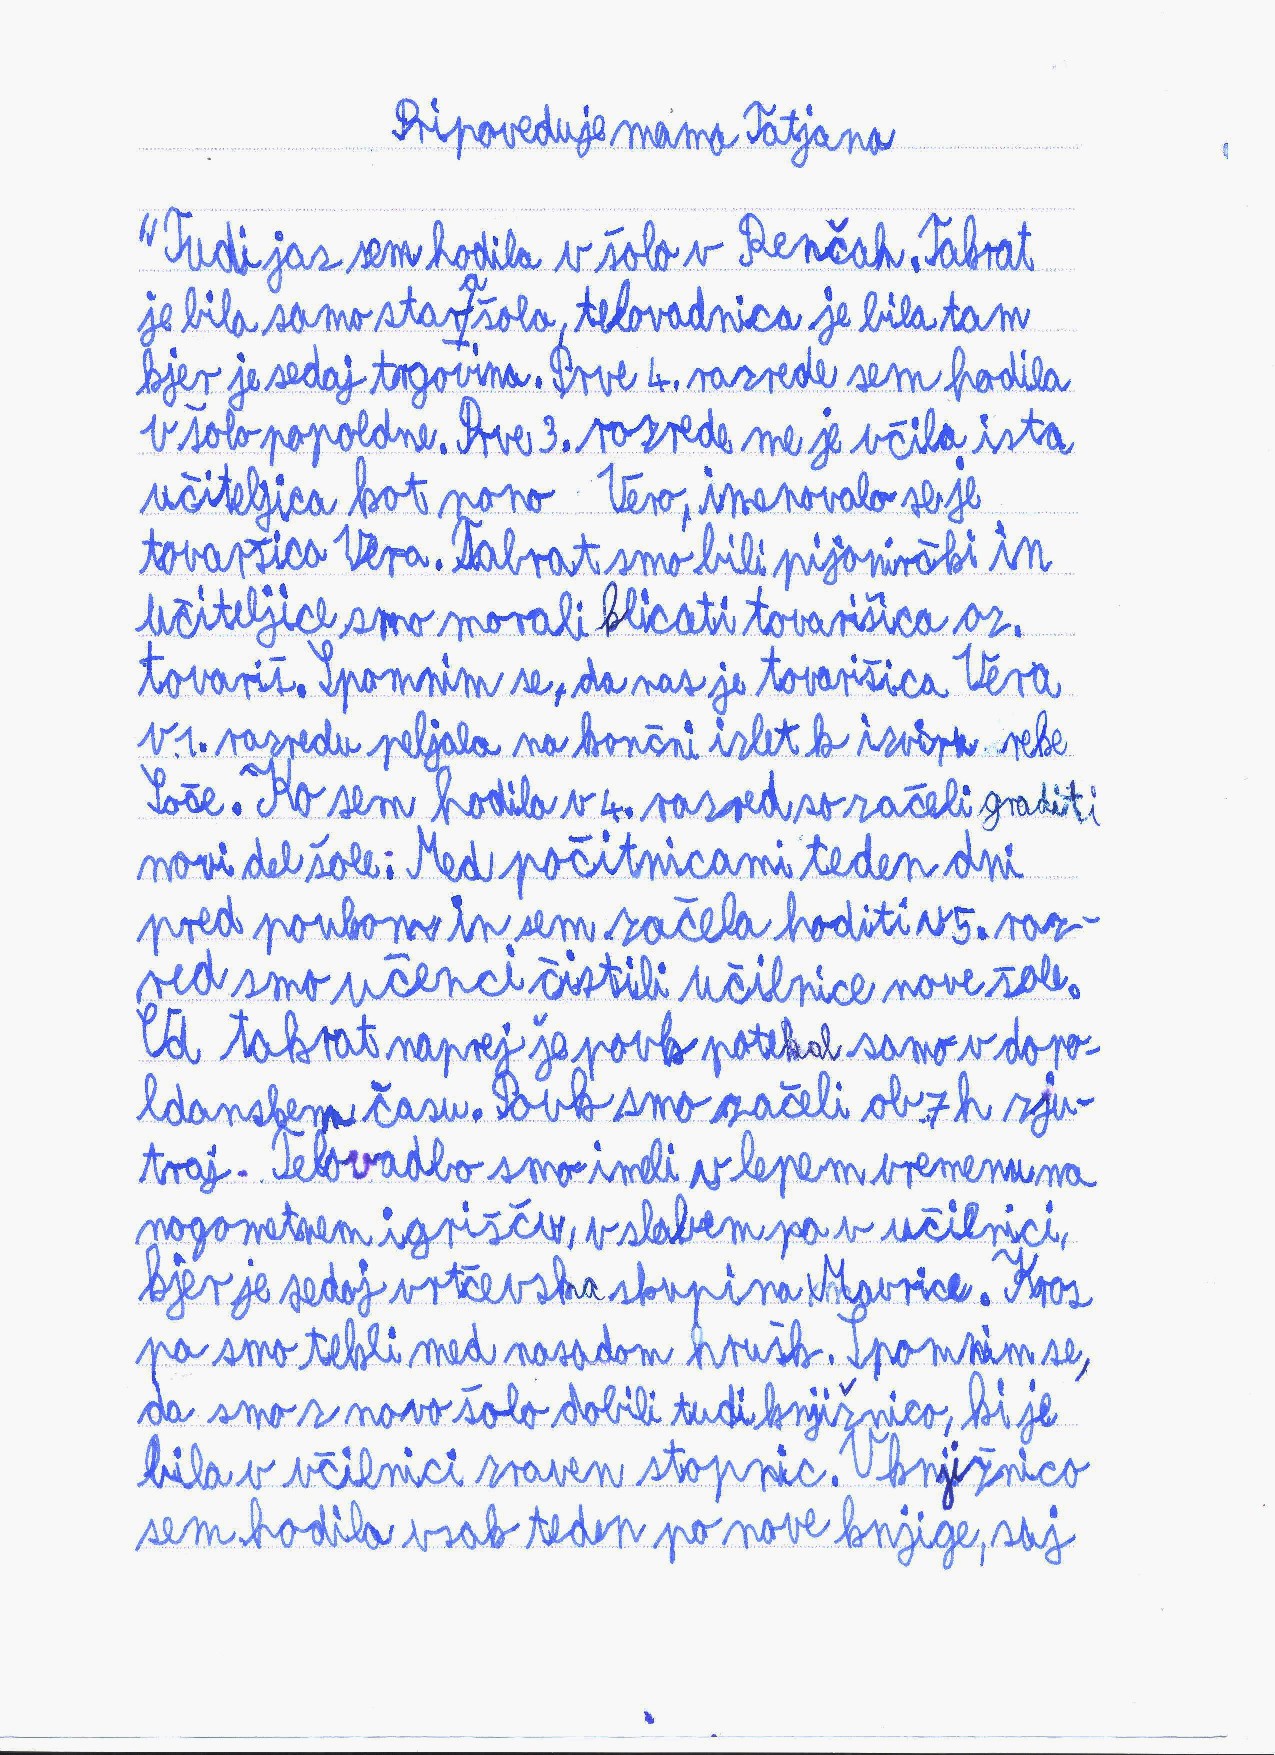 Pripoveduje mama Tatjana
"Tudi jaz sem hodila v šolo v Renčah. Takrat
je bila samo stara šola, telovadnica je bila tam
kjer je sedaj trgovina. Prve 4. razrede sem hodila
v šolo popoldne. Prve 3. razrede me je včila ista
učiteljica kot nono Vero, imenovalo se je
tovaršica Vera. Takrat smo bili pijonirčki in
učiteljice smo morali klicati tovarišica oz.
tovariš. Spomnim se, da nas je tovarišica Vera
v 1. razredu peljala na končni izlet k izviru reke
Soče. Ko sem hodila v 4. razred so začeli graditi
novi del šole. Med počitnicami teden dni
pred poukom in sem začela hoditi v 5. raz-
red smo učenci čistili učilnice nove šole.
Od takrat naprej je povk potekal samo v dopo-
ldanskem času. Povk smo začeli ob 7h zju-
traj. Telovadbo smo imeli v lepem vremenu na
nogometnem igrišču, v slabem pa v učilnici,
kjer je sedaj vrtčevska skupina Mavrice. Kros
pa smo tekli med nasadom hrušk. Spomnim se,
da smo z novo šolo dobili tudi knjižnico, ki je
bila v včilnici zraven stopnic. V knjižnico
sem hodila vsak teden po nove knjige, saj